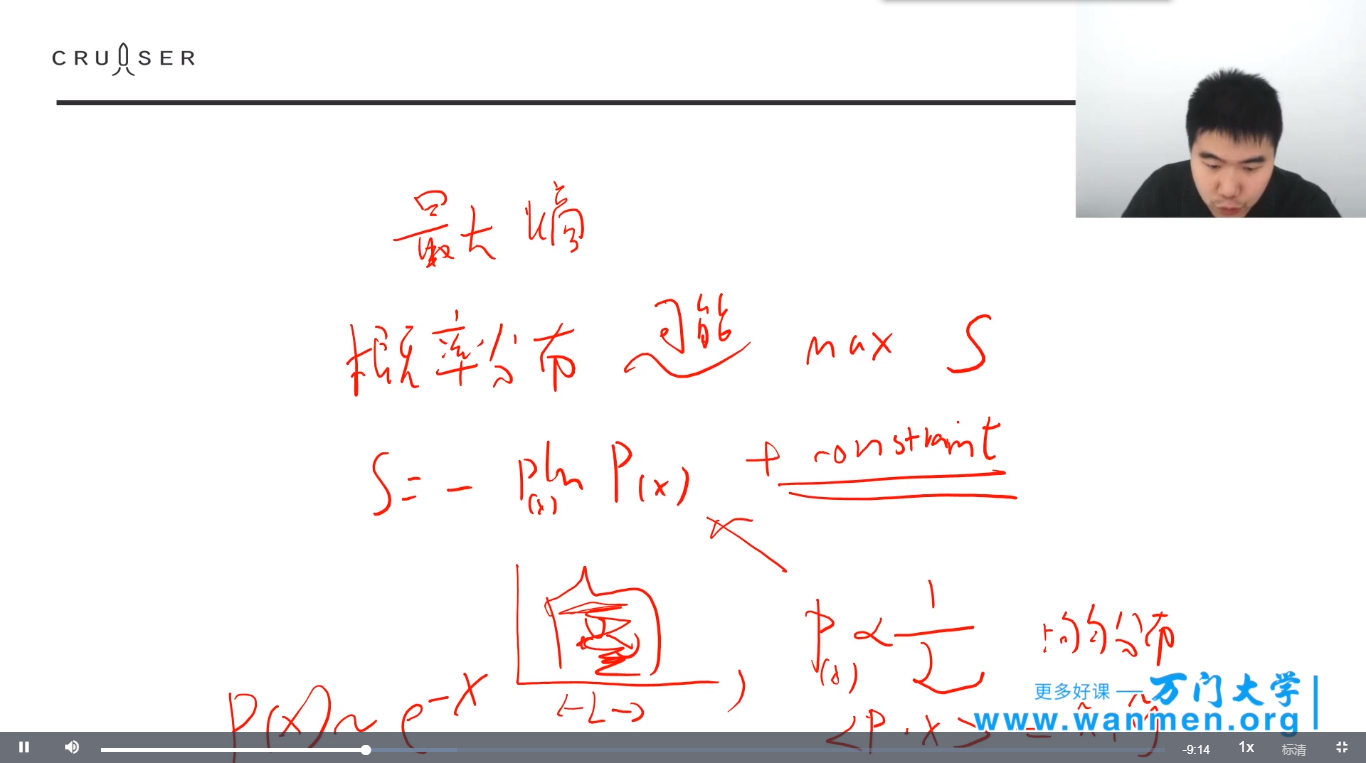 CRUISER
最大熵
概率分布 可能 max S
S = - P(x) ln P(x) + constraint
P(x) ∝ 1/L 均匀分布
←L→
P(x) ~ e^-x
更多好课 — 万门大学
www.wanmen.org
-9:14 1x 标清